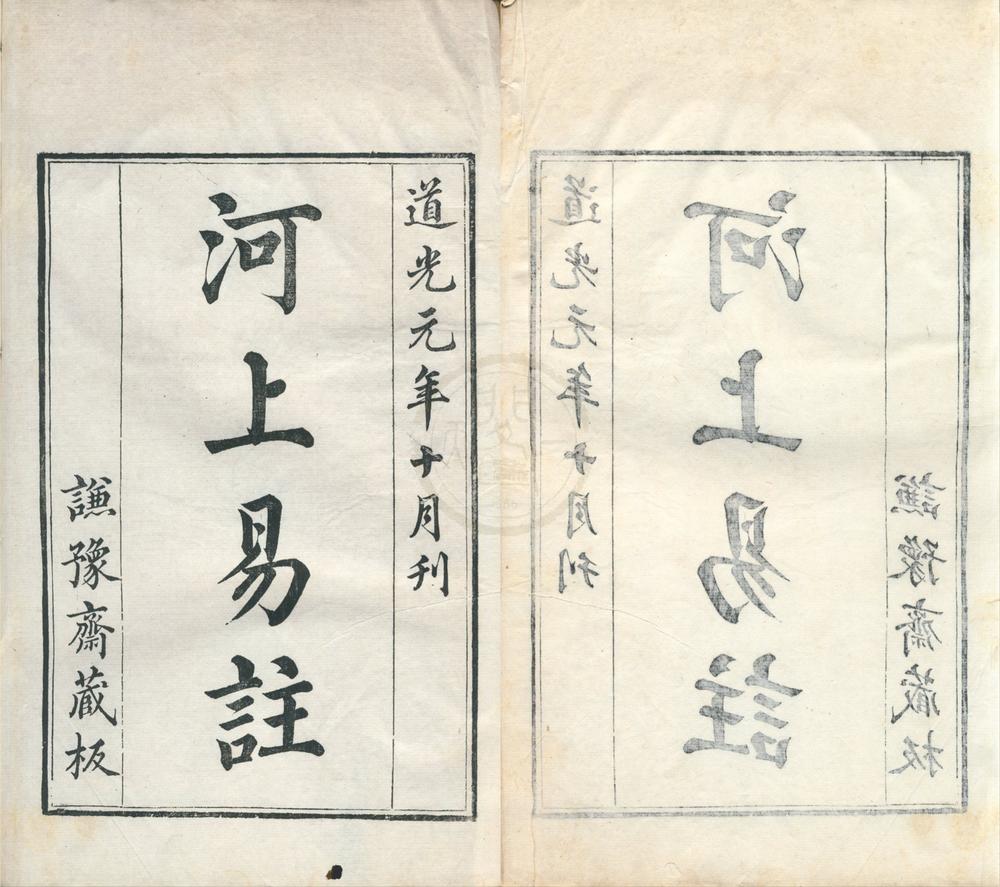 道光元年十月刊
河上易註
謙豫齋藏板